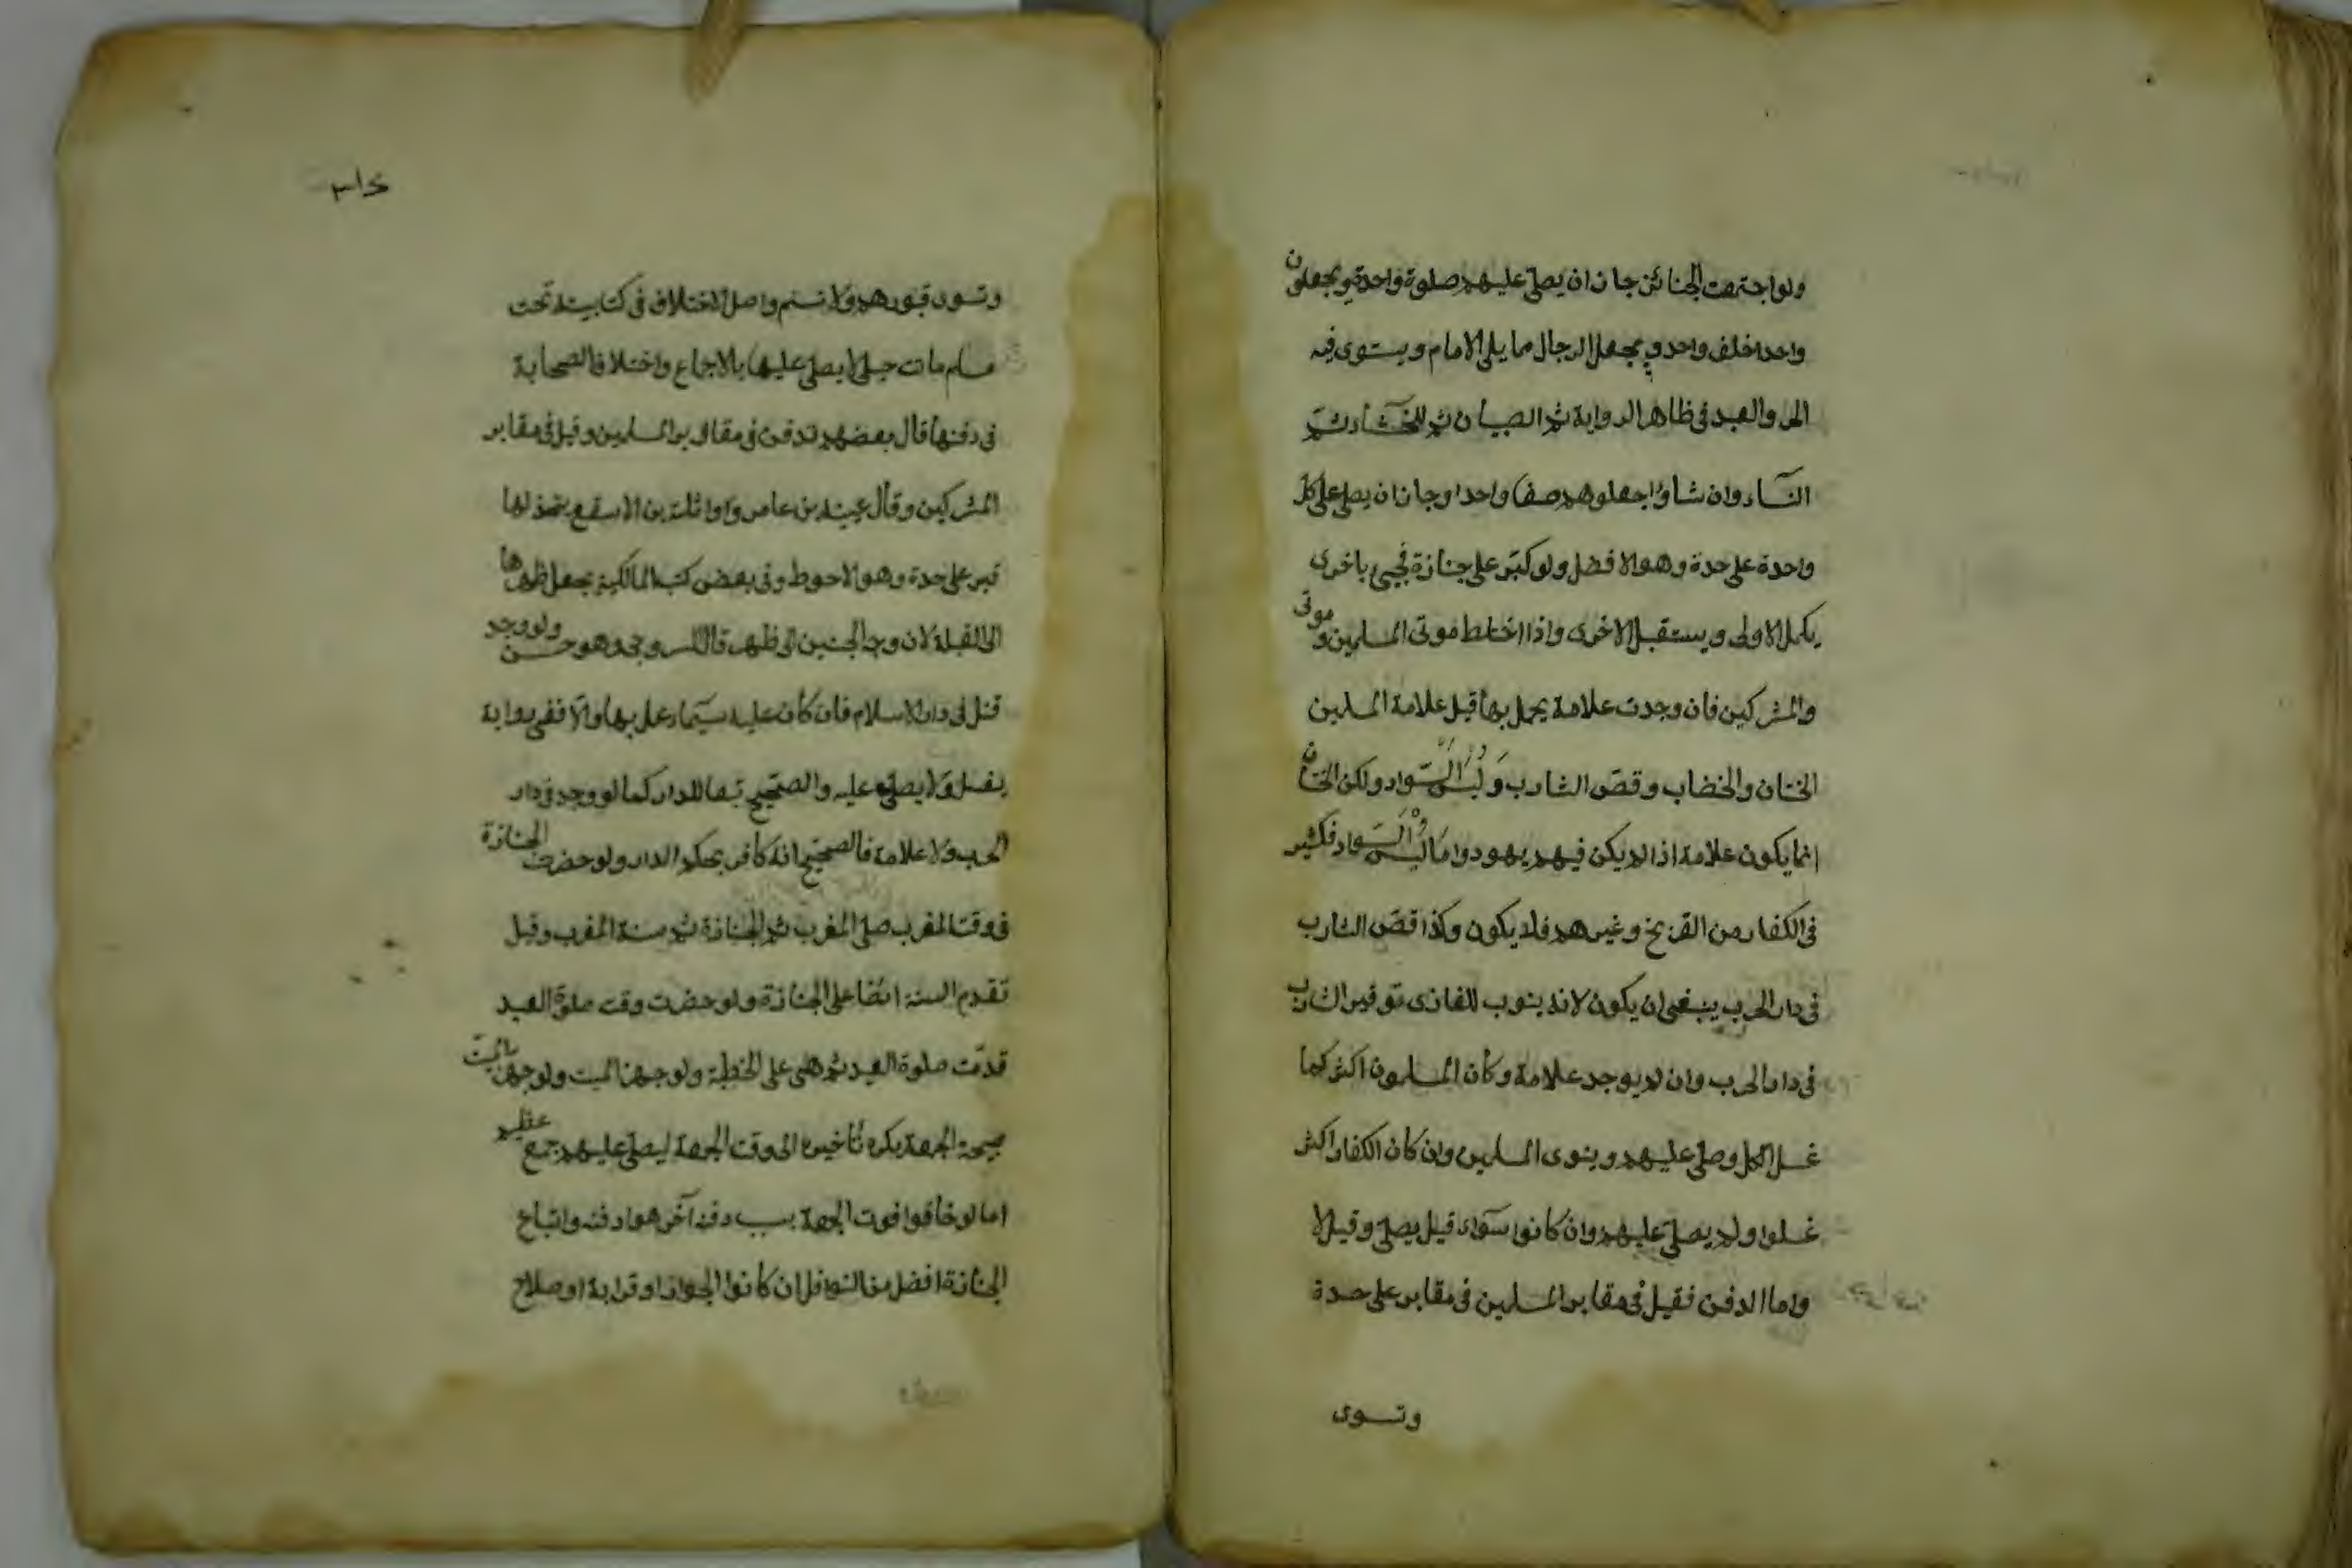 ولو اجتمعت الجنائز جاز ان يصلى عليهم صلوة واحدة ويجعلون
واحدا خلف واحد ويجعل الرجال مما يلى الامام ويستوى فيه
الحر والعبد فى ظاهر الرواية ثم الصبيان ثم الخناث ثم
النساء وان شاؤا جعلوهم صفا واحدا وجاز ان يصلى على كل
واحدة على حدة وهو الافضل ولو كبر على جنازة فجيئ باخرى
يكمل الاولى ويستقبل الاخرى واذا اختلط موتى المسلمين و موتى
والمشركين فان وجدت علامة يعمل بها قيل علامة المسلمين
الختان والخضاب وقص الشارب ولُبْسُ السَّواد ولكن الختان
انما يكون علامة اذا لم يكن فيهم يهود واما لبس السواد فكثير
فى الكفار من الفرنج وغيرهم فلا يكون وكذا قص الشارب
فى دار الحرب ينبغى ان يكون لانه ينوب للغازى توفير الشارب
فى دار الحرب وان لم يوجد علامة وكان المسلمون اكثر كما
غسل الكل وصلى عليهم وينوى المسلمين وان كان الكفار اكثر
غسلوا ولم يصلى عليهم وان كانوا سواء قيل يصلى وقيل لا
واما الدفن فقيل فى مقابر المسلمين فى مقابر على حدة
وتسوى
وتسوى قبورهم ولا تسنم واصل الاختلاف فى كتابية تحت
مسلم ماتت حبلى لا يصلى عليها بالاجماع واختلاف الصحابة
فى دفنها قال بعضهم تدفن فى مقابر المسلمين وقيل فى مقابر
المشركين وقال عقبة بن عامر وواثلة بن الاسقع يتخذ لها
قبر على حدة وهو الاحوط وفى بعض كتب المالكية يجعل ظهرها
الى القبلة لان وجه الجنين الى ظهره قال السروجى وهو حسن ولو وجد
قتل فى دار الاسلام فان كان عليه سيماء عمل بها والا ففى رواية
يغسل ولا يصلى عليه والصحيح تبعا للدار كما لو وجد فى دار
الحرب ولا علامة فالصحيح انه كافر بحكم الدار ولو حضرت الجنازة
فى وقت المغرب صلى المغرب ثم الجنازة ثم سنة المغرب وقيل
تقدم السنة ايضا على الجنازة ولو حضرت وقت صلوة العيد
قدمت صلوة العيد ثم هى على الخطبة ولو جهز الميت ولو جهز الميت
صبيحة الجمعة يكره تأخيره الى وقت الجمعة ليصلى عليهم جمع عظيم
اما لو خافوا فوت الجمعة بسبب دفنه آخر هو ا دفنه واتباع
الجنازة افضل من النوافل ان كانوا الجوار او قرابة او صلاح